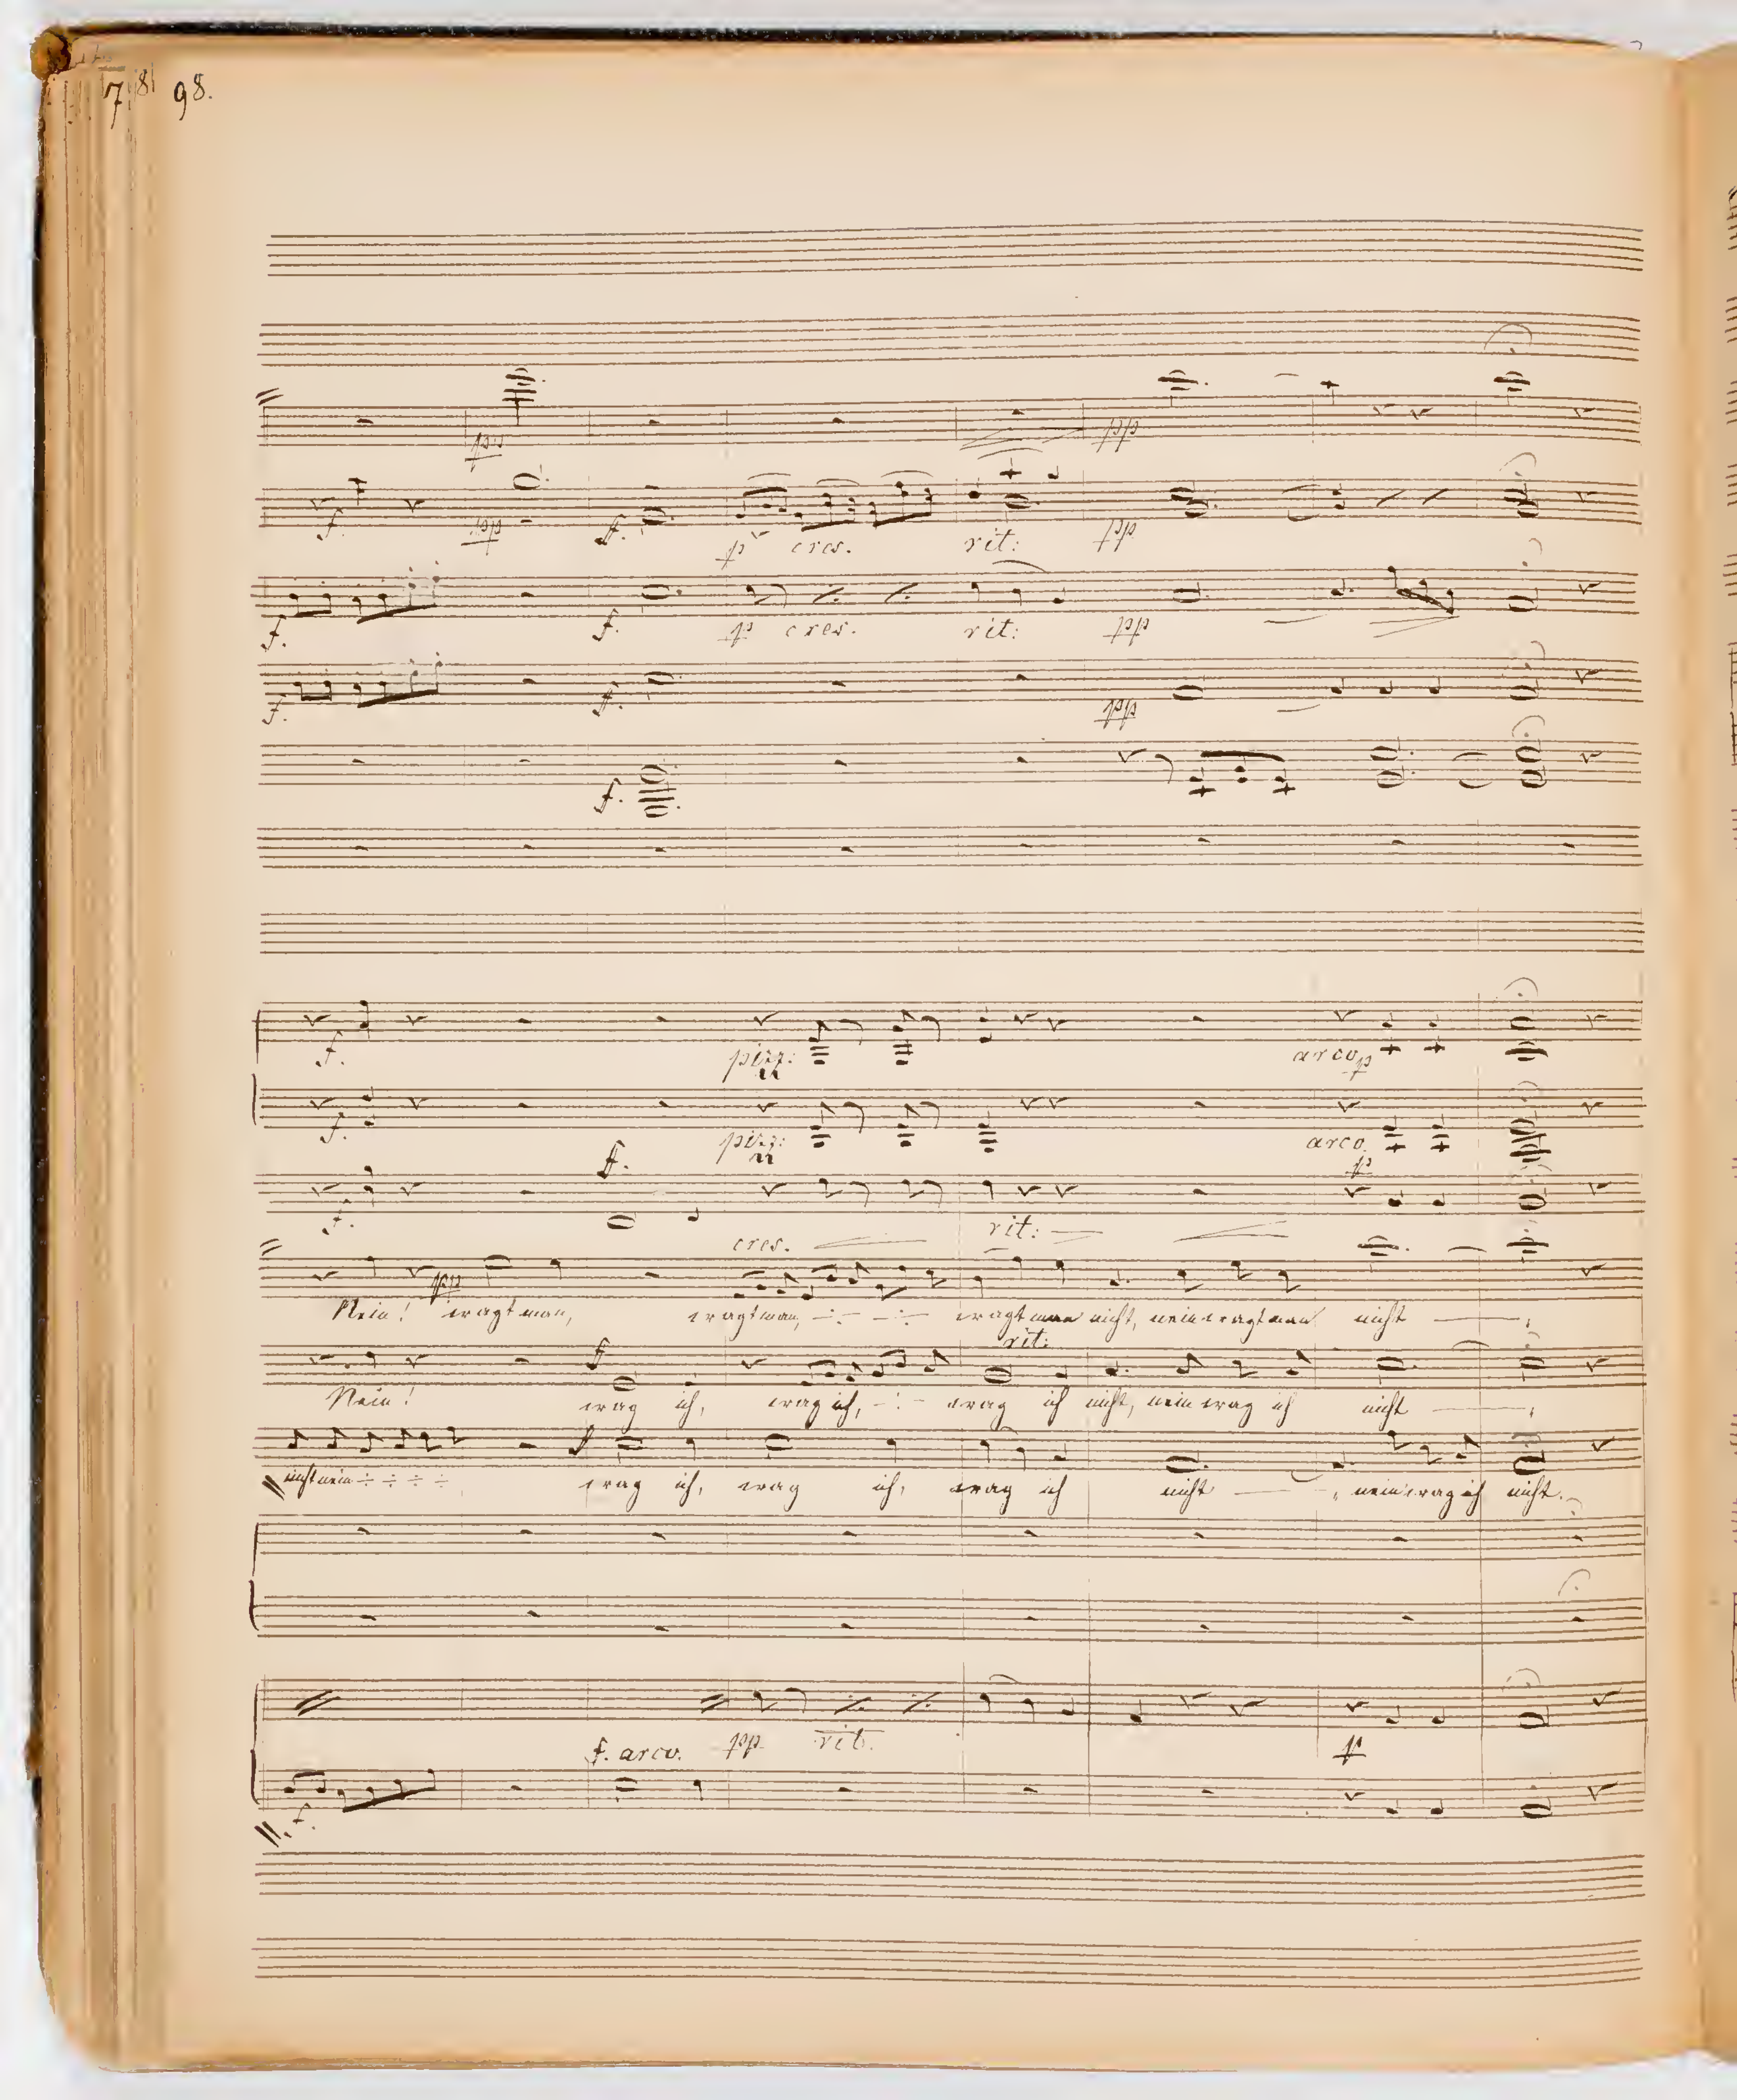 78 98.
pp pp
f. pp f. p cres. rit: pp
f. f. p cres. rit: pp
f. f. pp
f.
f. pizz: arco p
f. pizz: arco.
f. p
f. rit:
cres.
pp
Nein! tragt man, tragt man, nicht, nein tragt man nicht
rit:
f
Nein! trag ich, trag ich, trag ich nicht, nein trag ich nicht
f
nicht nein trag ich, trag ich, trag ich nicht, nein trag ich nicht.
f. arco. pp rit. p
f.